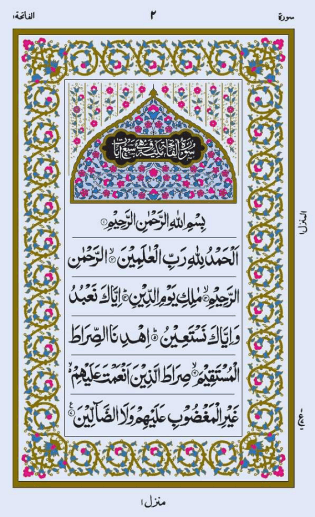 سورة ٢ الفاتحة١
سورة الفاتحة مكية وهي سبع آيات
بِسْمِ اللهِ الرَّحْمٰنِ الرَّحِيْمِ ۝١
اَلْحَمْدُ لِلّٰهِ رَبِّ الْعٰلَمِيْنَ ۝١ الرَّحْمٰنِ
الرَّحِيْمِ ۝٢ مٰلِكِ يَوْمِ الدِّيْنِ ۝٣ اِيَّاكَ نَعْبُدُ
وَاِيَّاكَ نَسْتَعِيْنُ ۝٤ اِهْدِنَا الصِّرَاطَ
الْمُسْتَقِيْمَ ۝٥ صِرَاطَ الَّذِيْنَ اَنْعَمْتَ عَلَيْهِمْ ۝٦
غَيْرِ الْمَغْضُوْبِ عَلَيْهِمْ وَلَا الضَّآلِّيْنَ ۝٧
المنزل١
منزل١